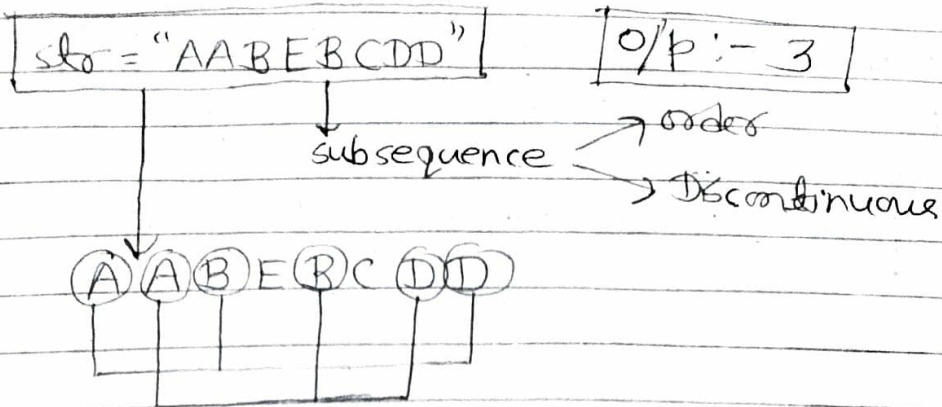 str = "AABEBCDD"
O/p :- 3
order
subsequence
Discontinuous
A A B E B C D D